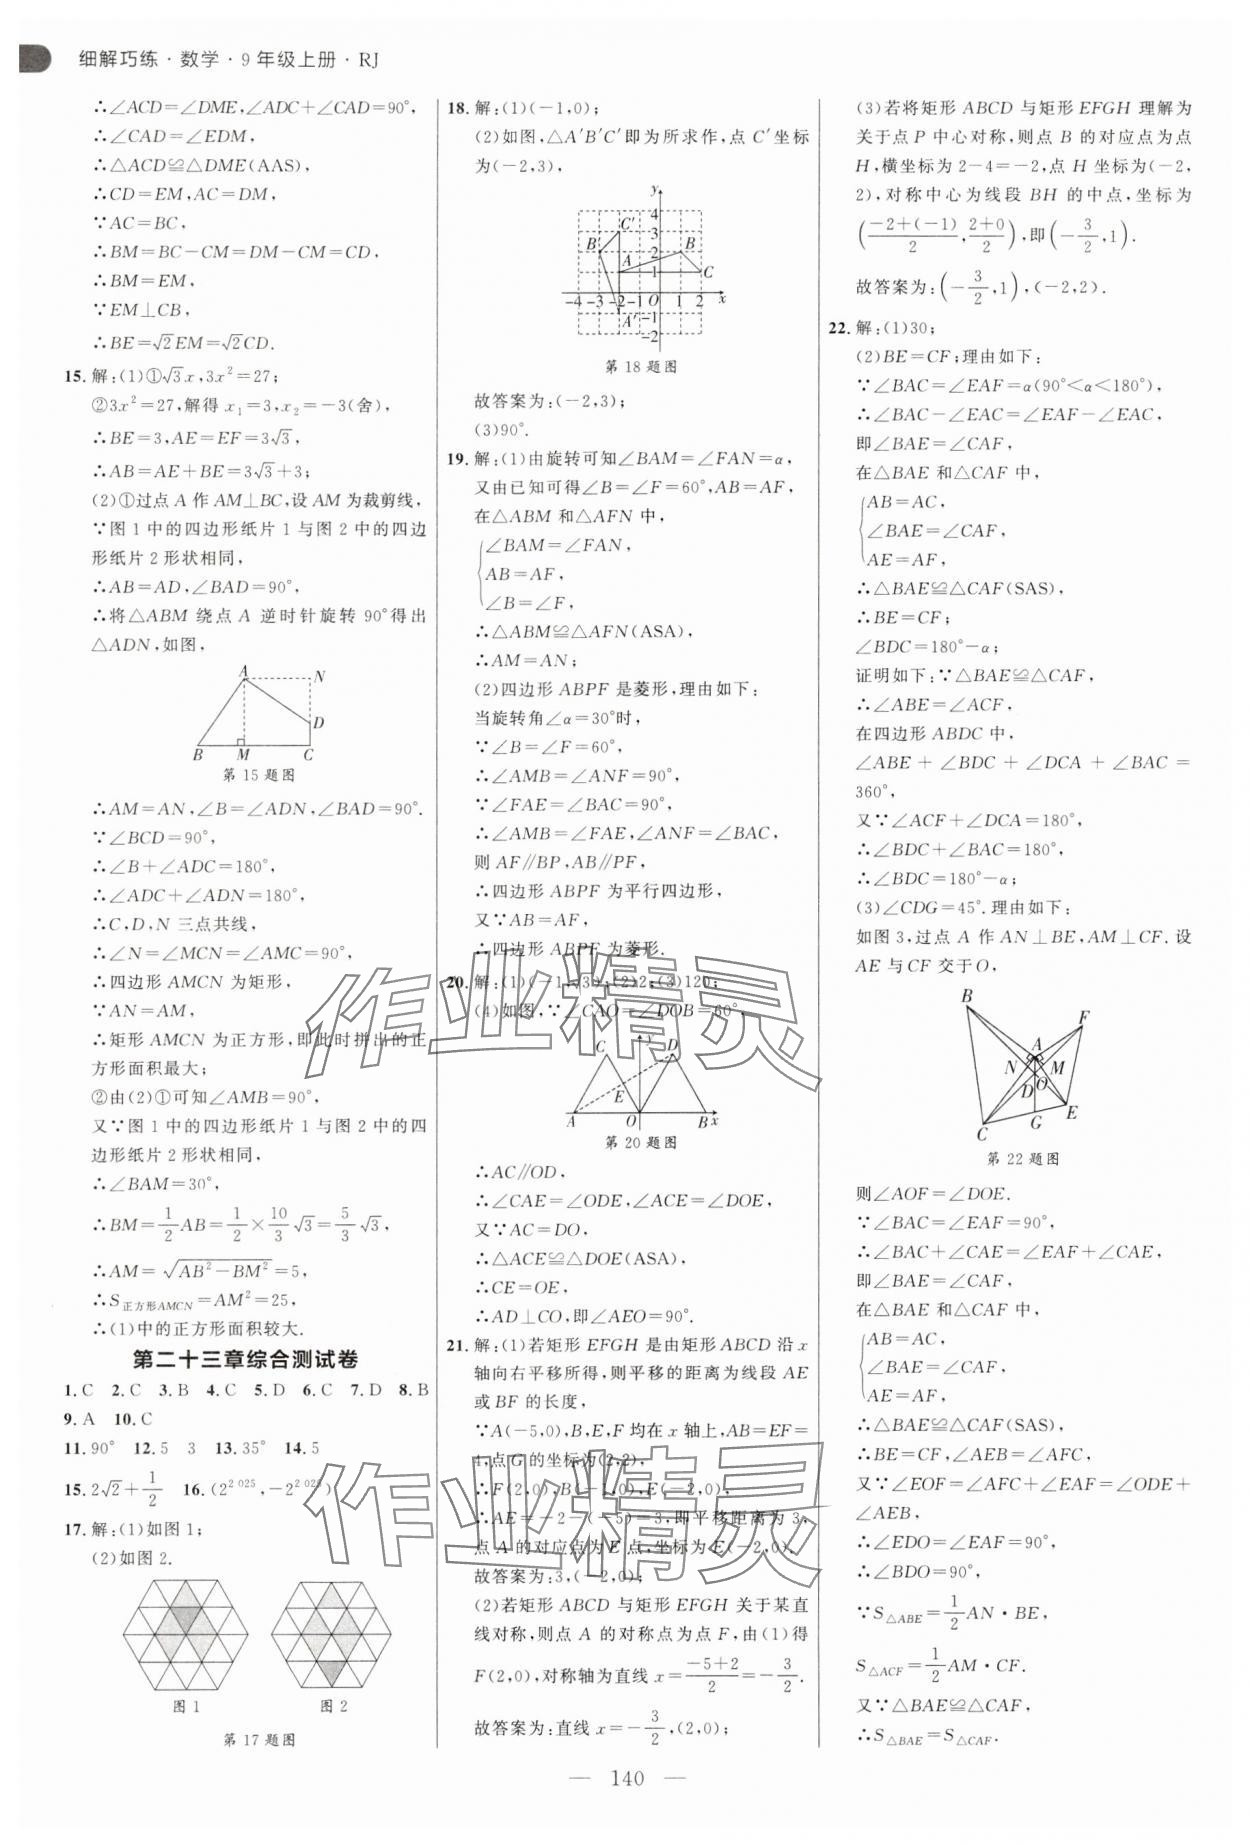 细解巧练·数学·9年级上册·RJ
∴∠ACD=∠DME,∠ADC+∠CAD=90°,
∴∠CAD=∠EDM,
∴△ACD≌△DME(AAS),
∴CD=EM,AC=DM,
∵AC=BC,
∴BM=BC-CM=DM-CM=CD,
∴BM=EM,
∵EM⊥CB,
∴BE=√2EM=√2CD.
15.解:(1)①√3x,3x²=27;
②3x²=27,解得x₁=3,x₂=-3(舍),
∴BE=3,AE=EF=3√3,
∴AB=AE+BE=3√3+3;
(2)①过点A作AM⊥BC,设AM为裁剪线,
∵图1中的四边形纸片1与图2中的四边
形纸片2形状相同,
∴AB=AD,∠BAD=90°,
∴将△ABM绕点A逆时针旋转90°得出
△ADN,如图,
A N
D
B M C
第15题图
∴AM=AN,∠B=∠ADN,∠BAD=90°.
∵∠BCD=90°,
∴∠B+∠ADC=180°,
∴∠ADC+∠ADN=180°,
∴C,D,N三点共线,
∴∠N=∠MCN=∠AMC=90°,
∴四边形AMCN为矩形,
∵AN=AM,
∴矩形AMCN为正方形,即此时拼出的正
方形面积最大;
②由(2)①可知∠AMB=90°,
又∵图1中的四边形纸片1与图2中的四
边形纸片2形状相同,
∴∠BAM=30°,
∴BM=1/2AB=1/2×10/3√3=5/3√3,
∴AM=√(AB²-BM²)=5,
∴S正方形AMCN=AM²=25,
∴(1)中的正方形面积较大.
第二十三章综合测试卷
1.C 2.C 3.B 4.C 5.D 6.C 7.D 8.B
9.A 10.C
11.90° 12.5 3 13.35° 14.5
15.2√2+1/2 16.(2^2 025,-2^2 025)
17.解:(1)如图1;
(2)如图2.
图1 图2
第17题图
18.解:(1)(-1,0);
(2)如图,△A′B′C′即为所求作,点C′坐标
为(-2,3),
y
4
C′ 3
B′ 2 B
A 1 C
-4 -3 -2 -1 O 1 2 x
A′ -1
-2
第18题图
故答案为:(-2,3);
(3)90°.
19.解:(1)由旋转可知∠BAM=∠FAN=α,
又由已知可得∠B=∠F=60°,AB=AF,
在△ABM和△AFN中,
∠BAM=∠FAN,
AB=AF,
∠B=∠F,
∴△ABM≌△AFN(ASA),
∴AM=AN;
(2)四边形ABPF是菱形,理由如下:
当旋转角∠α=30°时,
∵∠B=∠F=60°,
∴∠AMB=∠ANF=90°,
∵∠FAE=∠BAC=90°,
∴∠AMB=∠FAE,∠ANF=∠BAC,
则AF∥BP,AB∥PF,
∴四边形ABPF为平行四边形,
又∵AB=AF,
∴四边形ABPF为菱形.
20.解:(1)(-1,√3);(2)2;(3)120;
(4)如图,∵∠CAO=∠DOB=60°,
C y D
E
A O B x
第20题图
∴AC∥OD,
∴∠CAE=∠ODE,∠ACE=∠DOE,
又∵AC=DO,
∴△ACE≌△DOE(ASA),
∴CE=OE,
∴AD⊥CO,即∠AEO=90°.
21.解:(1)若矩形EFGH是由矩形ABCD沿x
轴向右平移所得,则平移的距离为线段AE
或BF的长度,
∵A(-5,0),B,E,F均在x轴上,AB=EF=
4,点G的坐标为(2,2),
∴F(2,0),B(-1,0),E(-2,0),
∴AE=-2-(-5)=3,即平移距离为3,
点A的对应点为E点,坐标为E(-2,0).
故答案为:3,(-2,0);
(2)若矩形ABCD与矩形EFGH关于某直
线对称,则点A的对称点为点F,由(1)得
F(2,0),对称轴为直线x=(-5+2)/2=-3/2.
故答案为:直线x=-3/2,(2,0);
(3)若将矩形ABCD与矩形EFGH理解为
关于点P中心对称,则点B的对应点为点
H,横坐标为2-4=-2,点H坐标为(-2,
2),对称中心为线段BH的中点,坐标为
((-2+(-1))/2,(2+0)/2),即(-3/2,1).
故答案为:(-3/2,1),(-2,2).
22.解:(1)30;
(2)BE=CF;理由如下:
∵∠BAC=∠EAF=α(90°<α<180°),
∴∠BAC-∠EAC=∠EAF-∠EAC,
即∠BAE=∠CAF,
在△BAE和△CAF中,
AB=AC,
∠BAE=∠CAF,
AE=AF,
∴△BAE≌△CAF(SAS),
∴BE=CF;
∠BDC=180°-α;
证明如下:∵△BAE≌△CAF,
∴∠ABE=∠ACF,
在四边形ABDC中,
∠ABE+∠BDC+∠DCA+∠BAC=
360°,
又∵∠ACF+∠DCA=180°,
∴∠BDC+∠BAC=180°,
∴∠BDC=180°-α;
(3)∠CDG=45°.理由如下:
如图3,过点A作AN⊥BE,AM⊥CF.设
AE与CF交于O,
B F
A
N M
O
D
E
C G
第22题图
则∠AOF=∠DOE.
∵∠BAC=∠EAF=90°,
∴∠BAC+∠CAE=∠EAF+∠CAE,
即∠BAE=∠CAF,
在△BAE和△CAF中,
AB=AC,
∠BAE=∠CAF,
AE=AF,
∴△BAE≌△CAF(SAS),
∴BE=CF,∠AEB=∠AFC,
又∵∠EOF=∠AFC+∠EAF=∠ODE+
∠AEB,
∴∠EDO=∠EAF=90°,
∴∠BDO=90°,
∵S△ABE=1/2AN·BE,
S△ACF=1/2AM·CF.
又∵△BAE≌△CAF,
∴S△BAE=S△CAF.
作业精灵
作业精灵
— 140 —